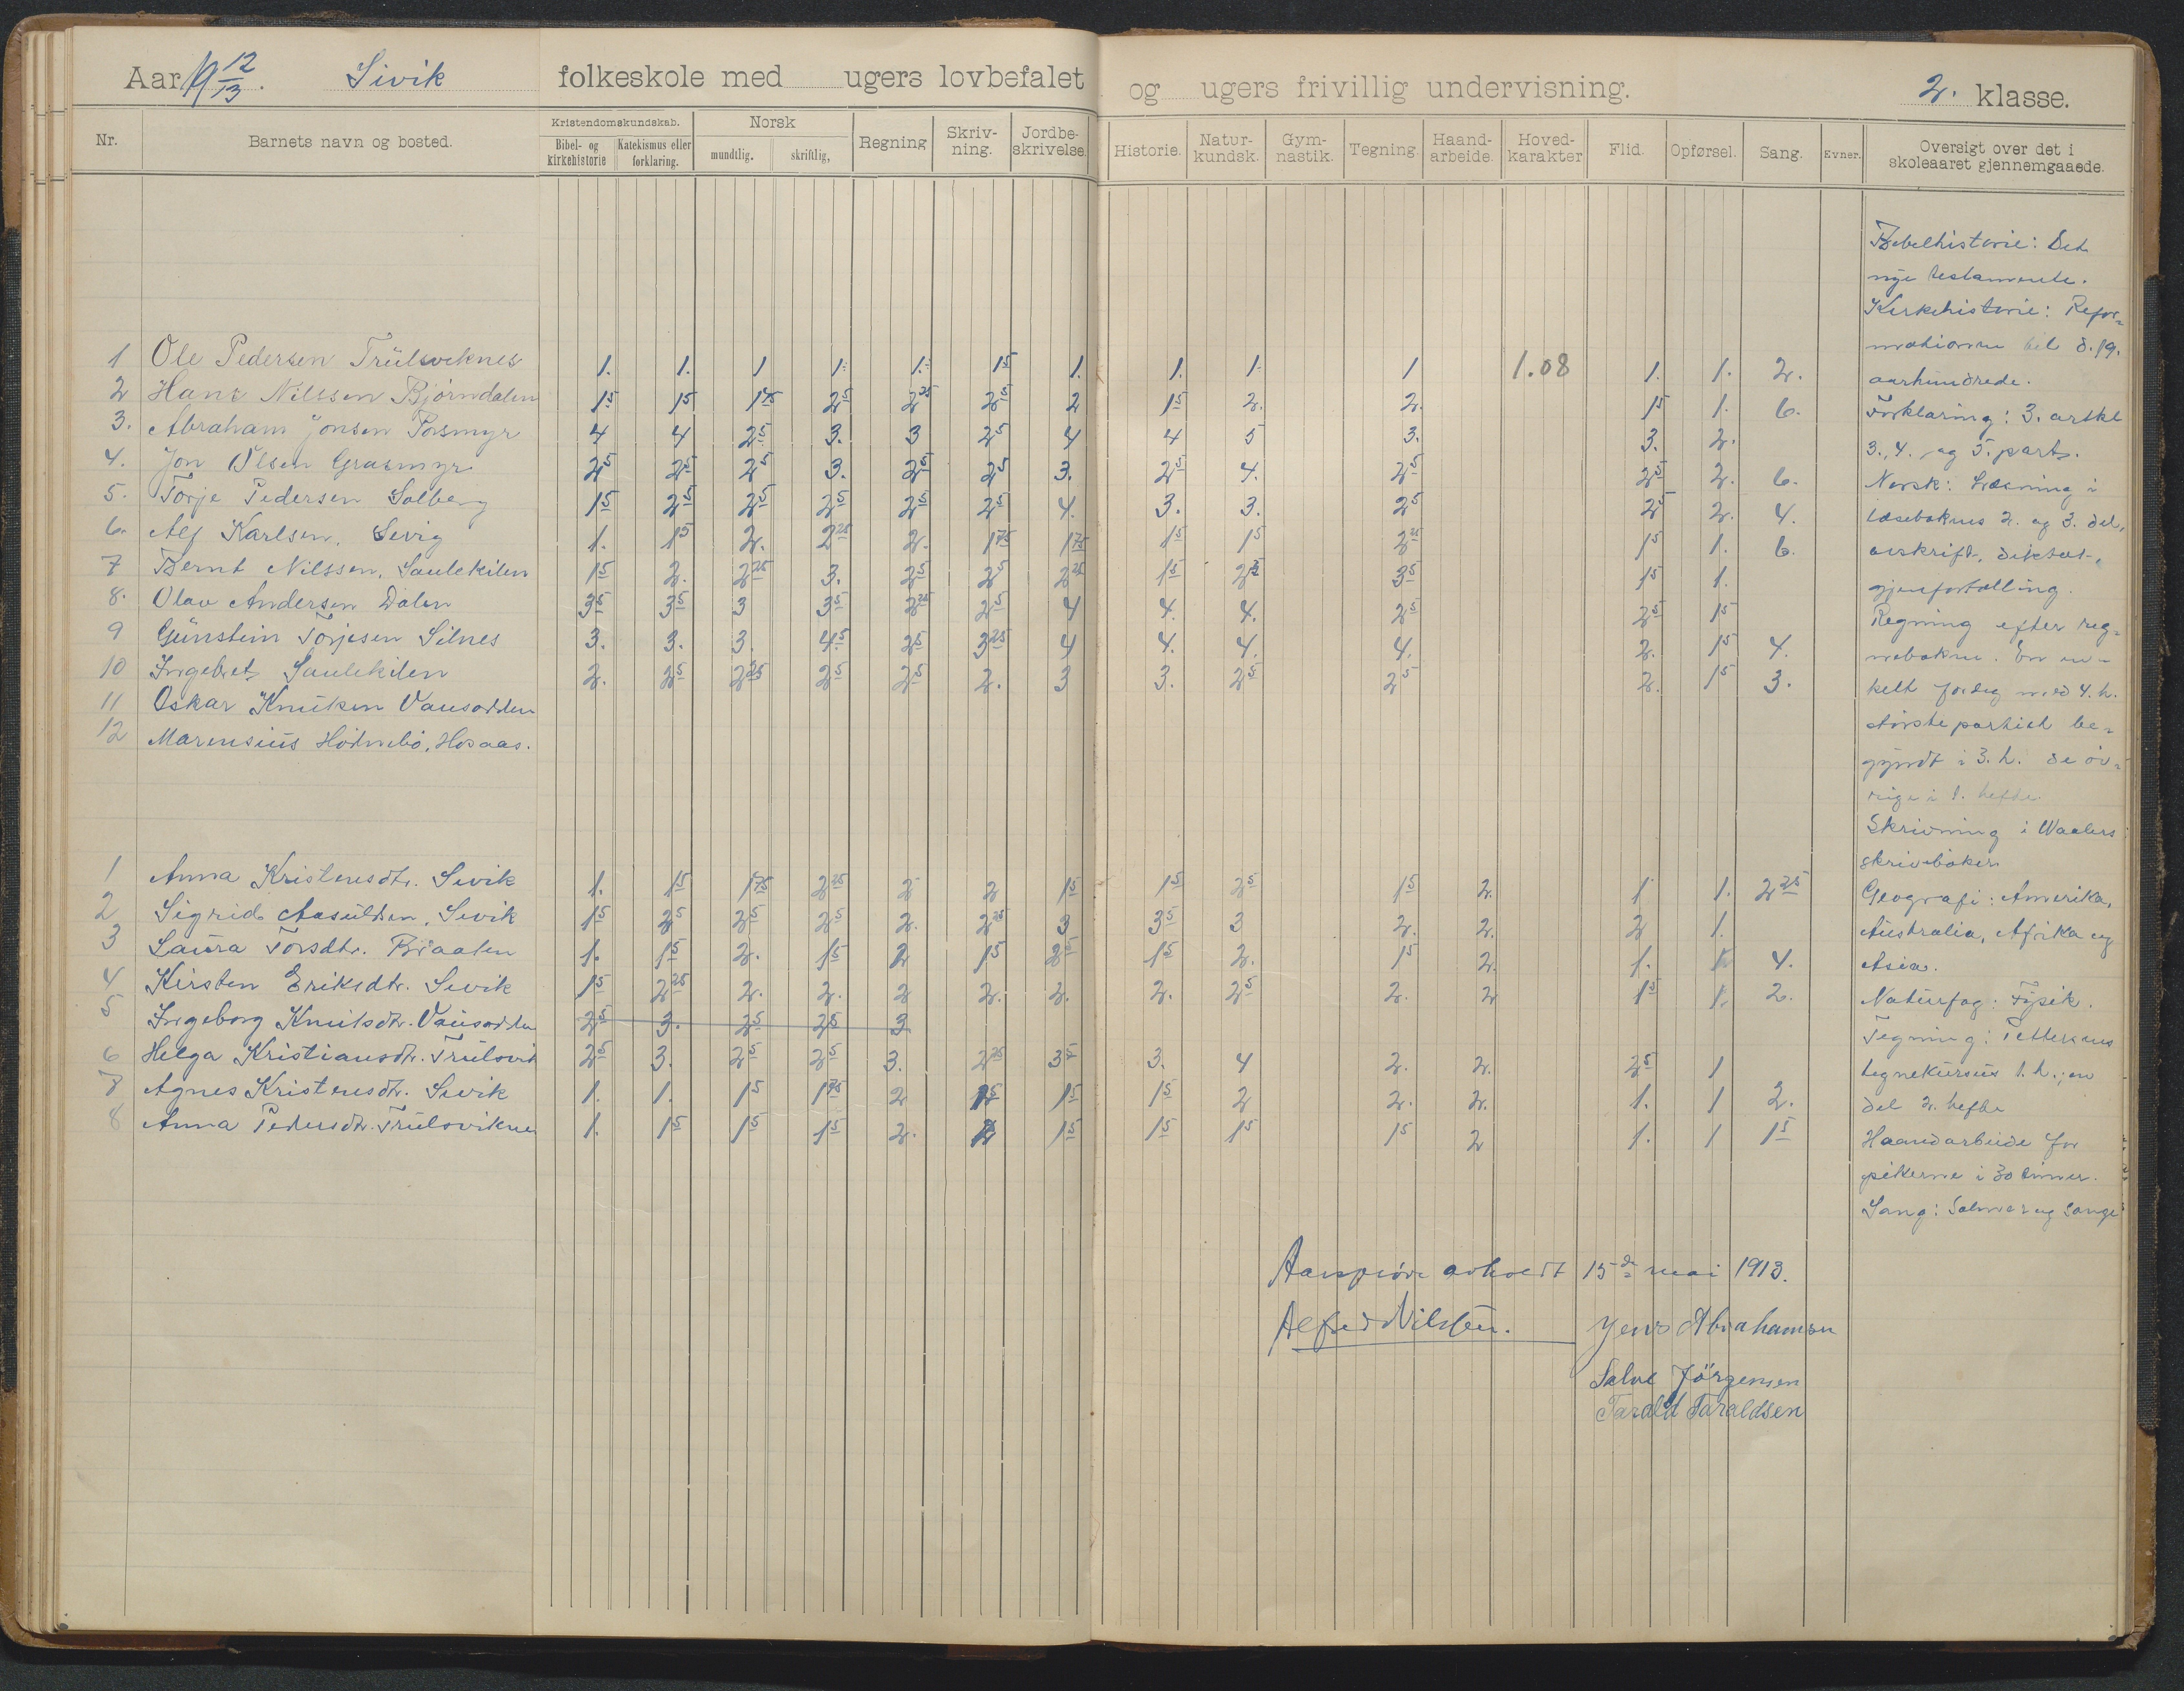 Aar 19 12/13. Sivik folkeskole med ugers lovbefalet og ugers frivillig undervisning. 2. klasse.
Nr. Barnets navn og bosted. Kristendomskundskab. Bibel- og kirkehistorie Katekismus eller forklaring. Norsk mundtlig. skriftlig, Regning Skriv-ning. Jordbe-skrivelse. Historie. Natur-kundsk. Gym-nastik. Tegning Haand-arbeide. Hoved-karakter Flid. Opførsel. Sang. Evner. Oversigt over det i skoleaaret gjennemgaaede.
1 Ole Pedersen Trulsviknes 1. 1. 1 1. 1. 1 5 1. 1. 1. 1 1.08 1. 1. 2.
2 Hans Nilssen Bjørndalen 1 5 1 5 1 75 2 5 2 25 2 5 2 1 5 2. 2. 1 5 1. 6.
3. Abraham Jonsen Posmyr 4 4 2 5 3. 3 2 5 4 4 5 3. 3. 2.
4. Jon Olsen Grasmyr 2 5 2 5 2 5 3. 2 5 2 5 3. 2 5 4. 2 5 2 5 2. 6.
5. Torje Pedersen Solberg 1 5 2 5 2 5 2 5 2 5 2 5 4. 3. 3. 2 5 2 5 2. 4.
6. Alf Karlsen, Sevig 1. 1 5 2. 2 25 2. 1 75 1 75 1 5 1 5 2 25 1 5 1. 6.
7 Bernt Nilssen, Saulekilen 1 5 2. 2 25 3. 2 5 2 5 2 25 1 5 2 5 3 5 1 5 1.
8. Olav Andersen Dalen 3 5 3 5 3 3 5 2 25 2 5 4 4. 4. 2 5 2 5 1 5
9 Gunstein Torjesen Silnes 3. 3. 3. 4 5 2 5 3 25 4 4. 4. 4. 2. 1 5 4.
10 Ingebret Saulekilen 2. 2 5 2 25 2 5 2 5 2. 3 3. 2 5 2 5 2. 1 5 3.
11 Oskar Knutsen Vausodden
12 Marensius Hødnebø, Hosaas.
1 Anna Kristensdtr. Sevik 1. 1 5 1 75 2 25 2 2 1 5 1 5 2 5 1 5 2. 1 1. 2 25
2 Sigrid Aasulsen, Sevik 1 5 2 5 2 5 2 5 2. 2 25 3 3 5 3 2. 2. 2 1.
3 Laura Torsdtr. Braaten 1. 1 5 2. 1 5 2 1 5 2 5 1 5 2. 1 5 2. 1. 1 4.
4 Kirsten Eriksdtr. Sevik 1 5 2 25 2. 2. 2 2. 2. 2. 2 5 2. 2 1 5 1. 2.
5 Ingeborg Knutsdtr. Vausodden 2 5 3. 2 5 2 5 3
6 Helga Kristiansdtr. Trulsvik 2 5 3. 2 5 2 5 3. 2 25 3 5 3. 4 2. 2. 2 5 1
7 Agnes Kristensdtr. Sevik 1. 1. 1 5 1 75 2 1 5 1 5 1 5 2 2. 2. 1. 1 2.
8 Anna Pedersdtr. Trulsviknes 1. 1 5 1 5 1 5 2. 2 1 5 1 5 1 5 1 5 2 1. 1 1 5
Bibelhistorie: Det
nye testamente.
Kirkehistorie: Refor-
mationen til d. 19.
aarhundrede.
Forklaring: 3. artikl
3., 4. og 5. part.
Norsk: Læsning i
læsebokens 2. og 3. del,
avskrift, diktat,
gjenfortælling.
Regning efter reg-
nebokne. En en-
kelt færdig med 4. h.
største partiet be-
gyndt i 3. h. de øv-
rige i 1. hefte
Skrivning i Waalers
skrivebøker
Geografi: Amerika,
Australia, Afrika og
Asia.
Naturfag: Fysik.
Tegning: Pettersens
tegnekursus 1. h.; en
del 2. hefte
Haandarbeide for
pikerne i 30 timer.
Sang: Salmer og sange
Aarsprøve avholdt 15de mai 1913.
Alfred Nilssen. Jens Abrahamsen
Salve Jörgensen
Tarald Taraldsen